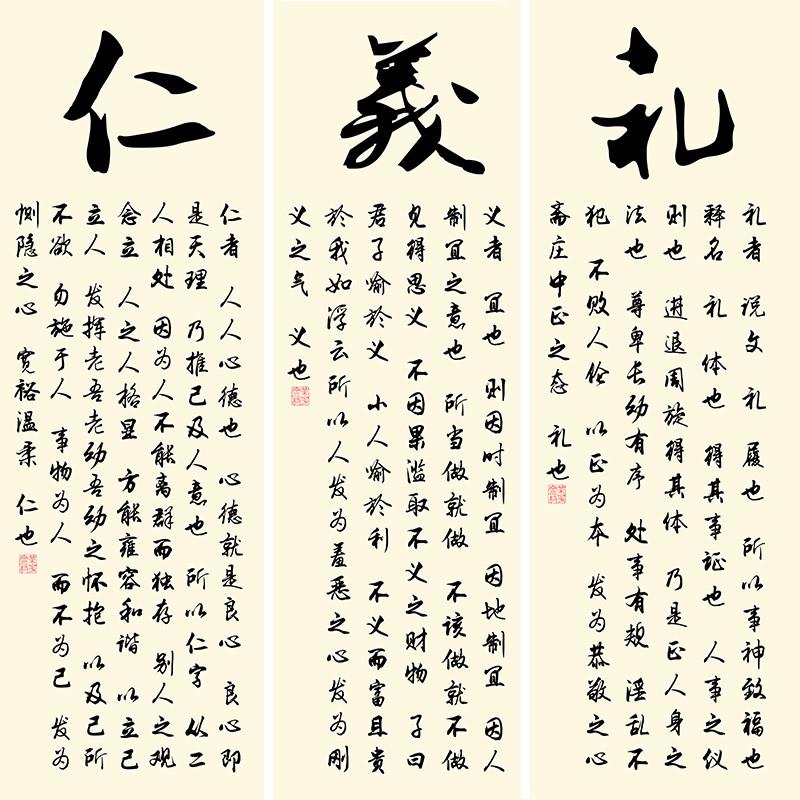 仁
仁者 人人心德也 心德就是良心 良心即
是天理 乃推己及人意也 所以仁字 从二
人相处 因为人不能离群而独存 别人之观
念立 人之人格显 方能雍容和谐 以立己
立人 发挥老吾老幼吾幼之怀抱 以及己所
不欲 勿施于人 事物为人 而不为己 发为
恻隐之心 宽裕温柔 仁也
義
义者 宜也 则因时制宜 因地制宜 因人
制宜之意也 所当做就做 不该做就不做
见得思义 不因果滥取不义之财物 子曰
君子喻於义 小人喻於利 不义而富且贵
於我如浮云所以人发为羞恶之心发为刚
义之气 义也
礼
礼者 说文 礼 履也 所以事神致福也
释名 礼 体也 得其事证也 人事之仪
则也 进退周旋得其体 乃是正人身之
法也 尊卑长幼有序 处事有规 淫乱不
犯 不败人伦 以正为本 发为恭敬之心
斋庄中正之态 礼也